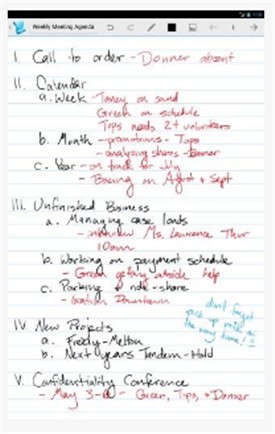 Weekly Meeting Agenda
I. Call to order - Donner absent
II. Calendar
a. Week - Taney on sand
Green on schedule
Tops needs 2+ volunteers
b. Month - promotions - Tops
- analyzing shares - Donner
c. Year - on track for July
- Boeing on August & Sept
III. Unfinished Business
a. Managing case loads
- interview Ms. Laurence Thur
10am
b. Working on payment schedule
- Green getting outside help
c. Parking & ride-share
- location Downtown
don't forget
pick up milk on
the way home!!
IV. New Projects
a. Freddy-Melton
b. Next years Tandem-Hold
V. Confidentiality Conference
- May 3-6 - Green, Tips, & Donner